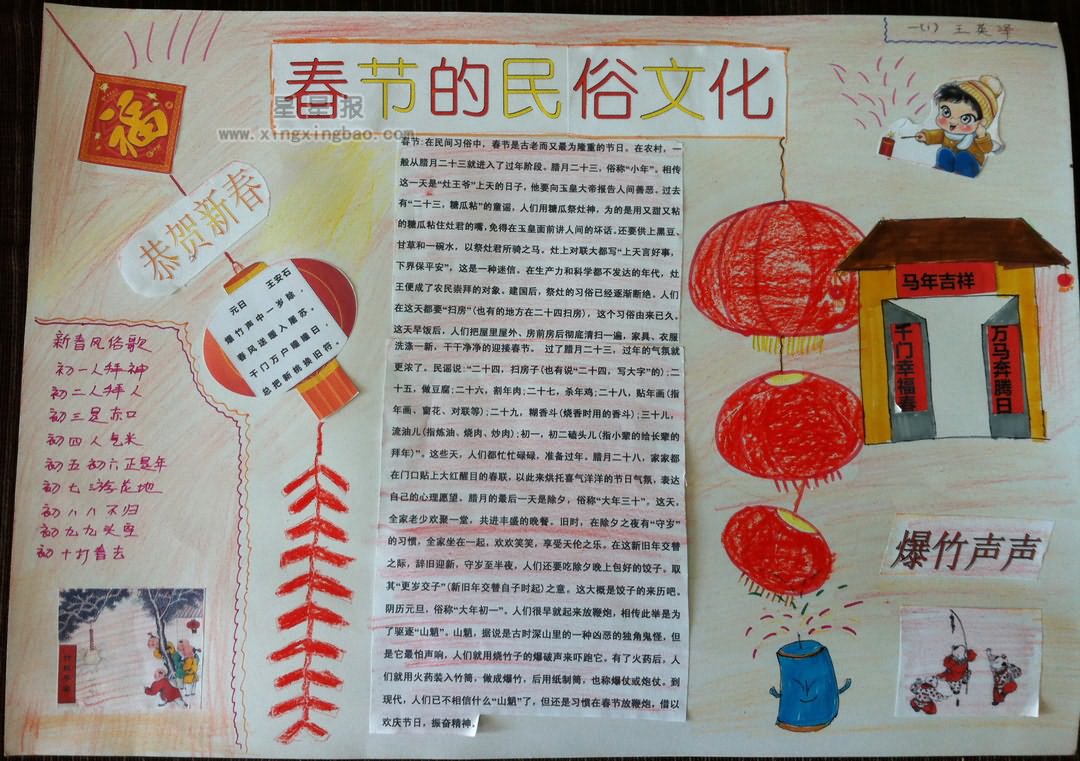 一(1) 王英泽
春节的民俗文化
星星报
www.xingxingbao.com
福
恭贺新春
元日 王安石
爆竹声中一岁除，
春风送暖入屠苏。
千门万户曈曈日，
总把新桃换旧符。
新春风俗歌
初一人拜神
初二人拜人
初三是赤口
初四人乞米
初五初六正是年
初七游花地
初八八不归
初九九头空
初十打春去
春节:在民间习俗中，春节是古老而又最为隆重的节日。在农村，一
般从腊月二十三就进入了过年阶段。腊月二十三，俗称“小年”。相传
这一天是“灶王爷”上天的日子，他要向玉皇大帝报告人间善恶。过去
有“二十三，糖瓜粘”的童谣，人们用糖瓜祭灶神，为的是用又甜又粘
的糖瓜粘住灶君的嘴，免得在玉皇面前讲人间的坏话。还要供上黑豆、
甘草和一碗水，以祭灶君所骑之马。灶上对联大都写“上天言好事，
下界保平安”，这是一种迷信。在生产力和科学都不发达的年代，灶
王便成了农民崇拜的对象。建国后，祭灶的习俗已经逐渐断绝。人们
在这天都要“扫房”（也有的地方在二十四扫房），这个习俗由来已久。
这天早饭后，人们把屋里屋外、房前房后彻底清扫一遍，家具、衣服
洗涤一新，干干净净的迎接春节。 过了腊月二十三，过年的气氛就
更浓了。民谣说:“二十四，扫房子(也有说“二十四，写大字”的)；二
十五，做豆腐；二十六，割年肉；二十七，杀年鸡；二十八，贴年画(指
年画、窗花、对联等)；二十九，糊香斗(烧香时用的香斗)；三十儿，
流油儿(指炼油、烧肉、炒肉)；初一，初二磕头儿(指小辈的给长辈的
拜年)”。这些天，人们都忙忙碌碌，准备过年。腊月二十八，家家都
在门口贴上大红醒目的春联，以此来烘托喜气洋洋的节日气氛，表达
自己的心理愿望。腊月的最后一天是除夕，俗称“大年三十”。这天，
全家老少欢聚一堂，共进丰盛的晚餐。旧时，在除夕之夜有“守岁”
的习惯，全家坐在一起，欢欢笑笑，享受天伦之乐，在这新旧年交替
之际，辞旧迎新，守岁至半夜，人们还要吃除夕晚上包好的饺子。取
其“更岁交子”（新旧年交替自子时起)之意。这大概是饺子的来历吧。
阴历元旦，俗称“大年初一”。人们很早就起来放鞭炮，相传此举是为
了驱逐“山魈”。山魈，据说是古时深山里的一种凶恶的独角鬼怪，但
是它最怕声响，人们就用烧竹子的爆破声来吓跑它，有了火药后，人
们就用火药装入竹筒，做成爆竹，后用纸制筒，也称爆仗或炮仗。到
现代，人们已不相信什么“山魈”了，但还是习惯在春节放鞭炮，借以
欢庆节日，振奋精神。
马年吉祥
千门幸福春
万马奔腾日
爆竹声声